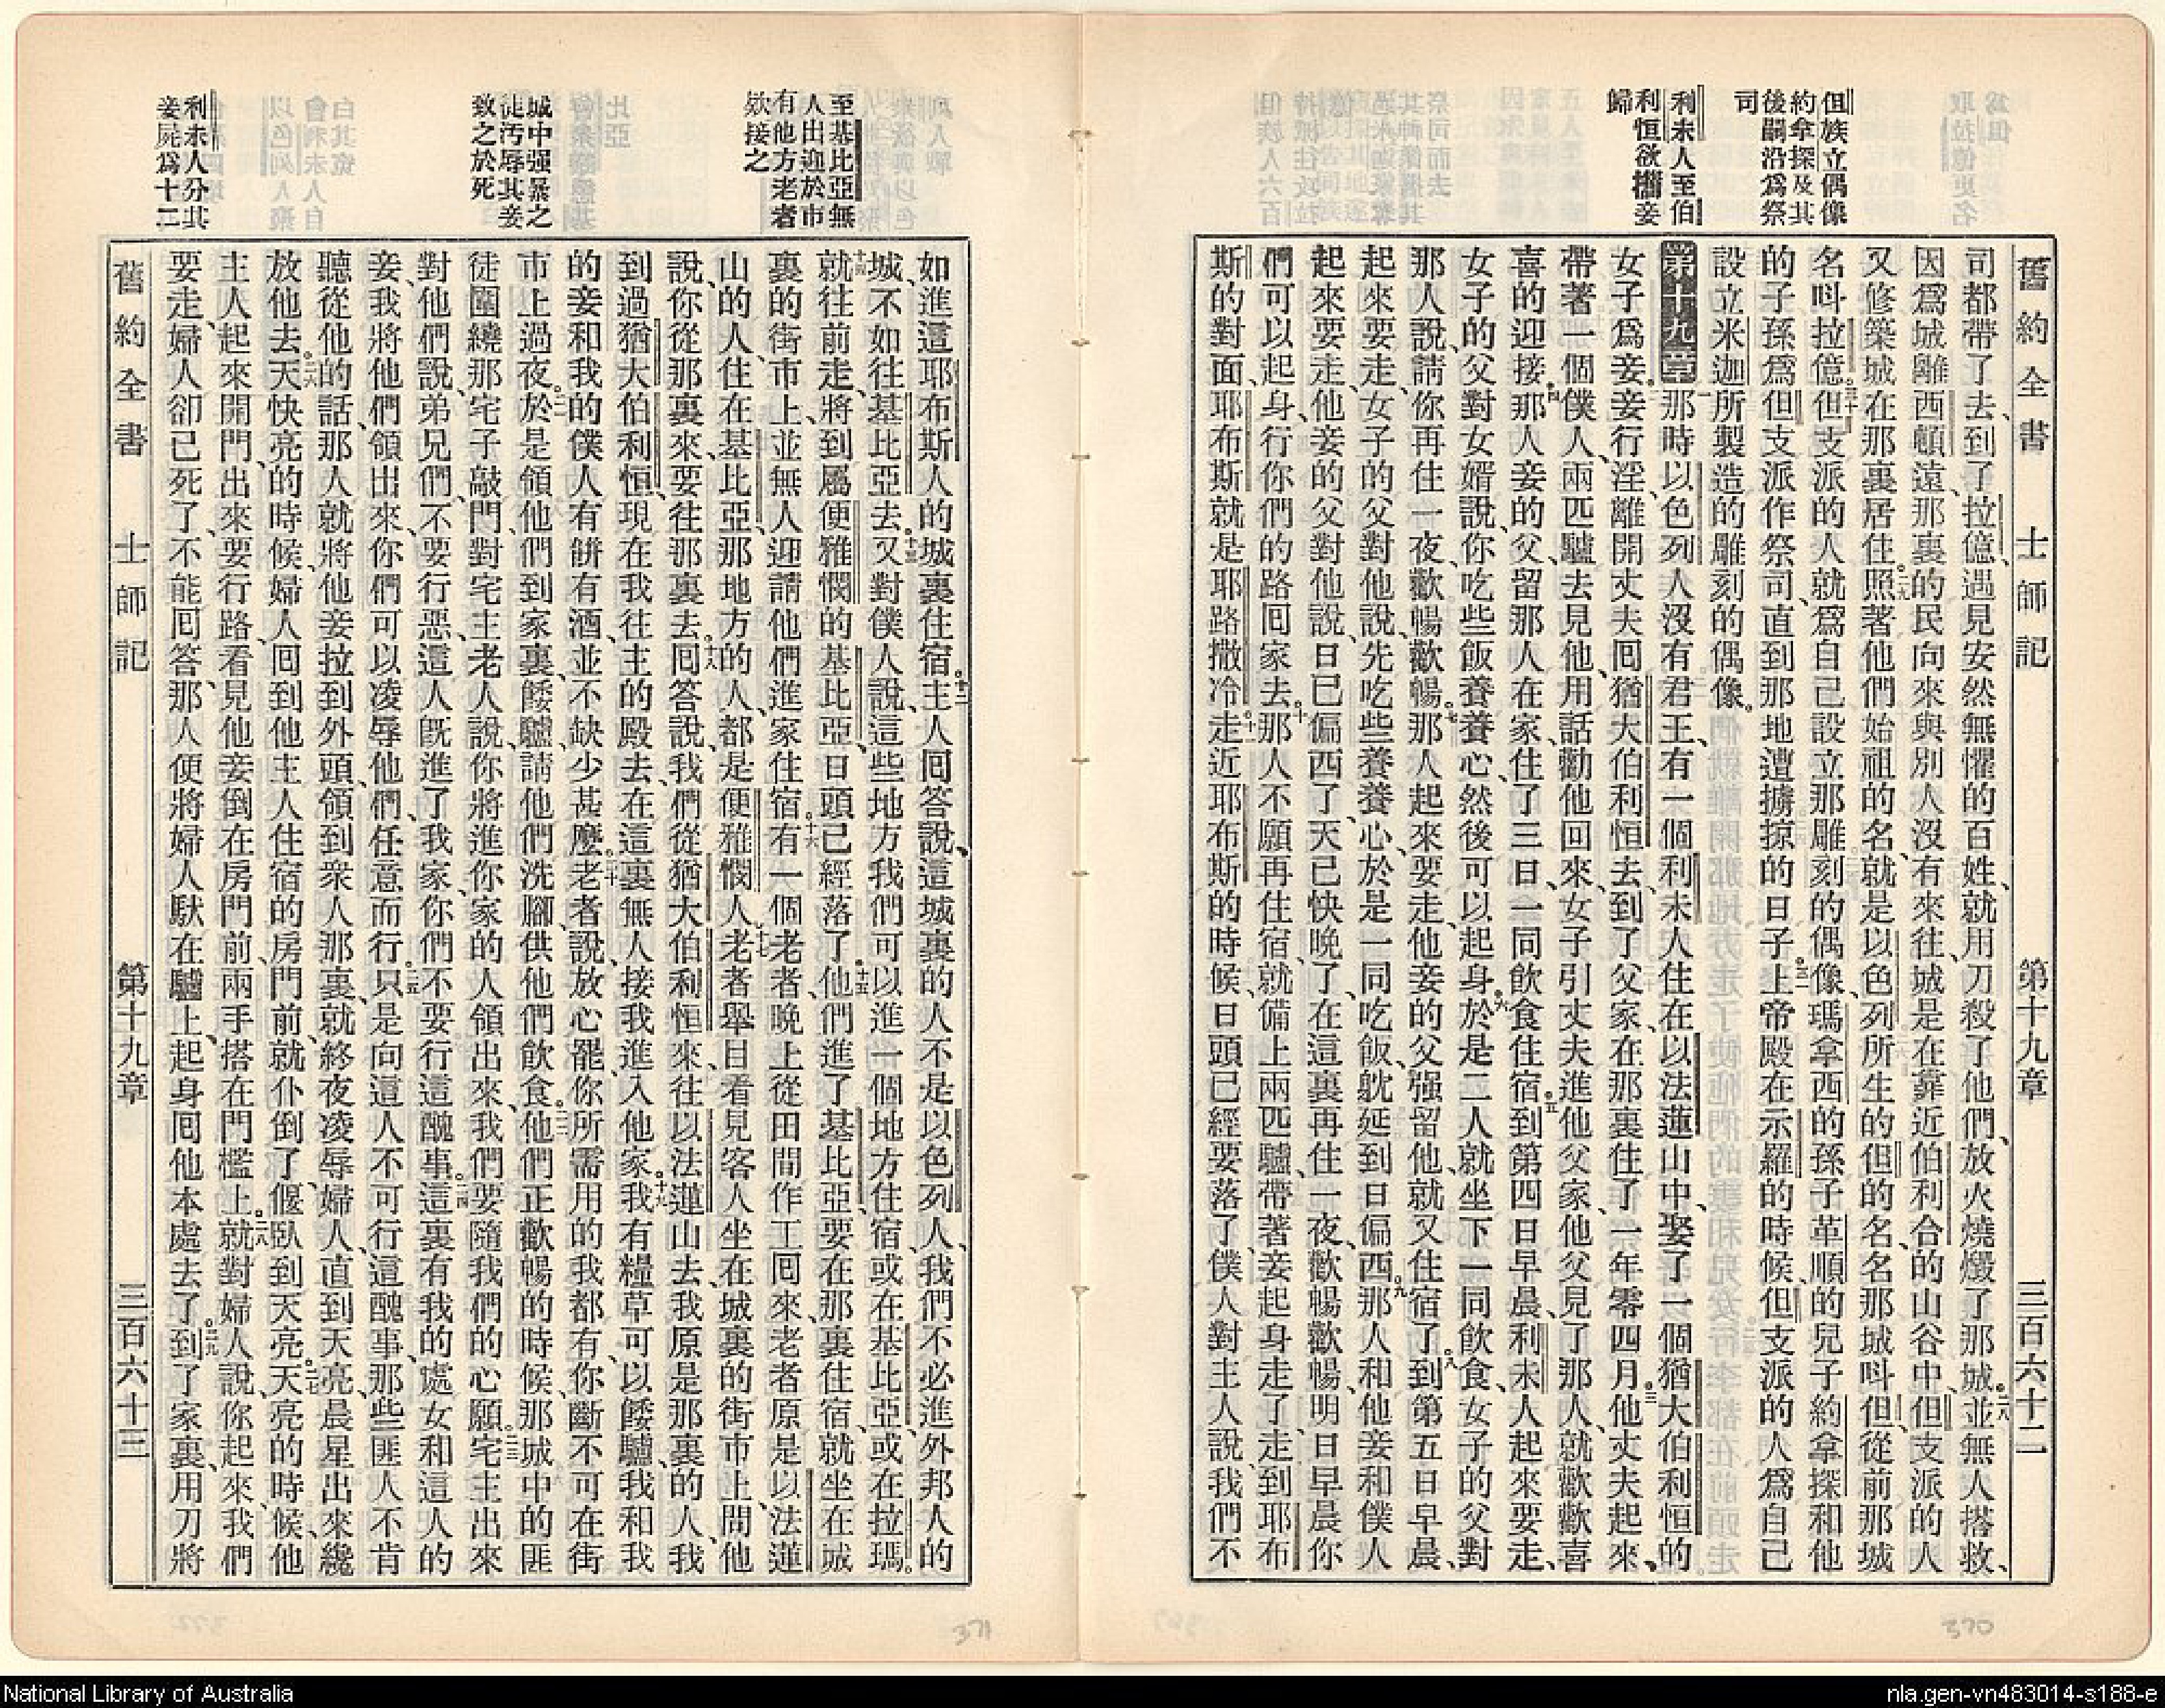 舊約全書 士師記 第十九章 三百六十二
但族立偶像
約拿探及其
後嗣沿爲祭
司
利未人至伯
利恒欲攜妾
歸
司都帶了去、到了拉億、過見安然無懼的百姓、就用刀殺了他們、放火燒燬了那城。二八並無人搭救、
因爲城離西頓遠、那裏的民向來與別人沒有來往、城是在靠近伯利合的山谷中、但支派的人
又修築城在那裏居住。二九照著他們始祖的名、就是以色列所生的但的名、名那城呌但、從前那城
名呌拉億。三十但支派的人就爲自己設立那雕刻的偶像、瑪拿西的孫子革順的兒子約拿探和他
的子孫爲但支派作祭司、直到那地遭擄掠的日子。三一上帝殿在示羅的時候、但支派的人爲自己
設立米迦所製造的雕刻的偶像。
第十九章 一那時以色列人沒有君王、有一個利未人住在以法蓮山中、娶了一個猶大伯利恒的
女子爲妾。二妾行淫、離開丈夫囘猶大伯利恒去、到了父家、在那裏住了一年零四月。三他丈夫起來、
帶著一個僕人、兩匹驢去見他、用話勸他回來、女子引丈夫進他父家、他父見了那人、就歡歡喜
喜的迎接。四那人妾的父、留那人在家、住了三日、一同飲食住宿。五到第四日早晨、利未人起來要走、
女子的父對女婿說、你吃些飯養養心、然後可以起身。六於是二人就坐下一同飲食、女子的父對
那人說、請你再住一夜、歡暢歡暢。七那人起來要走、他妾的父强留他、就又住宿了。八到第五日早晨、
起來要走、女子的父對他說、先吃些養養心、於是一同吃飯、躭延到日偏西。九那人和他妾和僕人
起來要走、他妾的父對他說、日已偏西了、天已快晚了、在這裏再住一夜、歡暢歡暢、明日早晨你
們可以起身、行你們的路囘家去。十那人不願再住宿、就備上兩匹驢、帶著妾起身走了、走到耶布
斯的對面、耶布斯就是耶路撒冷。十一走近耶布斯的時候、日頭已經要落了、僕人對主人說、我們不
370
至基比亞無
人出迎於市
有他方老者
欵接之
城中强暴之
徒汚辱其妾
致之於死
利未人分其
妾屍爲十二
如進這耶布斯人的城裏住宿。十二主人囘答說、這城裏的人不是以色列人、我們不必進外邦人的
城、不如往基比亞去。十三又對僕人說、這些地方我們可以進一個地方住宿、或在基比亞、或在拉瑪。
十四就往前走、將到屬便雅憫的基比亞、日頭已經落了。十五他們進了基比亞、要在那裏住宿、就坐在城
裏的街市上、並無人迎請他們進家住宿。十六有一個老者、晚上從田間作工囘來、老者原是以法蓮
山的人、住在基比亞、那地方的人、都是便雅憫人。十七老者舉目看見客人坐在城裏的街市上、問他
說、你從那裏來、要往那裏去。十八囘答說、我們從猶大伯利恒來、往以法蓮山去、我原是那裏的人、我
到過猶大伯利恒、現在我往主的殿去、在這裏無人接我進入他家。十九我有糧草可以餧驢、我和我
的妾和我的僕人有餅有酒、並不缺少甚麼。二十老者說、放心罷、你所需用的我都有、你斷不可在街
市上過夜。二一於是領他們到家裏、餧驢、請他們洗腳、供他們飲食。二二他們正歡暢的時候、那城中的匪
徒圍繞那宅子敲門、對宅主老人說、你將進你家的人領出來、我們要隨我們的心願。二三宅主出來
對他們說、弟兄們、不要行惡、這人旣進了我家、你們不要行這醜事。二四這裏有我的處女和這人的
妾、我將他們領出來、你們可以凌辱他們、任意而行。二五只是向這人不可行這醜事、那些匪人不肯
聽從他的話、那人就將他妾拉到外頭、領到衆人那裏、就終夜凌辱婦人、直到天亮、晨星出來纔
放他去。二六天快亮的時候、婦人囘到他主人住宿的房門前、就仆倒了、偃臥到天亮。二七天亮的時候、他
主人起來開門、出來要行路、看見他妾倒在房門前、兩手搭在門檻上。二八就對婦人說、你起來、我們
要走、婦人卻已死了、不能囘答、那人便將婦人馱在驢上、起身囘他本處去了。二九到了家裏、用刀將
舊約全書 士師記 第十九章 三百六十三
371
National Library of Australia
nla.gen-vn483014-s188-e